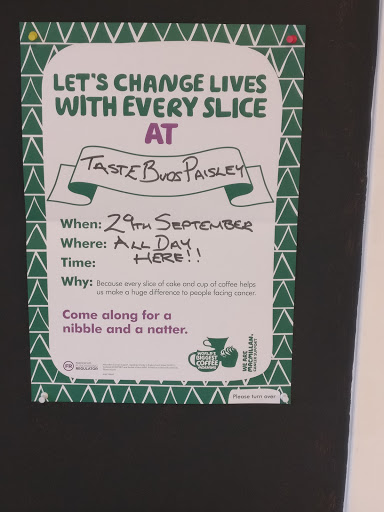 LET'S CHANGE LIVES
WITH EVERY SLICE
AT
TASTE BUDS PAISLEY
When: 29TH SEPTEMBER
Where: ALL DAY
Time: HERE!!
Why: Because every slice of cake and cup of coffee helps
us make a huge difference to people facing cancer.
Come along for a
nibble and a natter.
FR
REGULATOR
WORLD'S
BIGGEST
COFFEE
MORNING
WE ARE
MACMILLAN.
CANCER SUPPORT
Please turn over